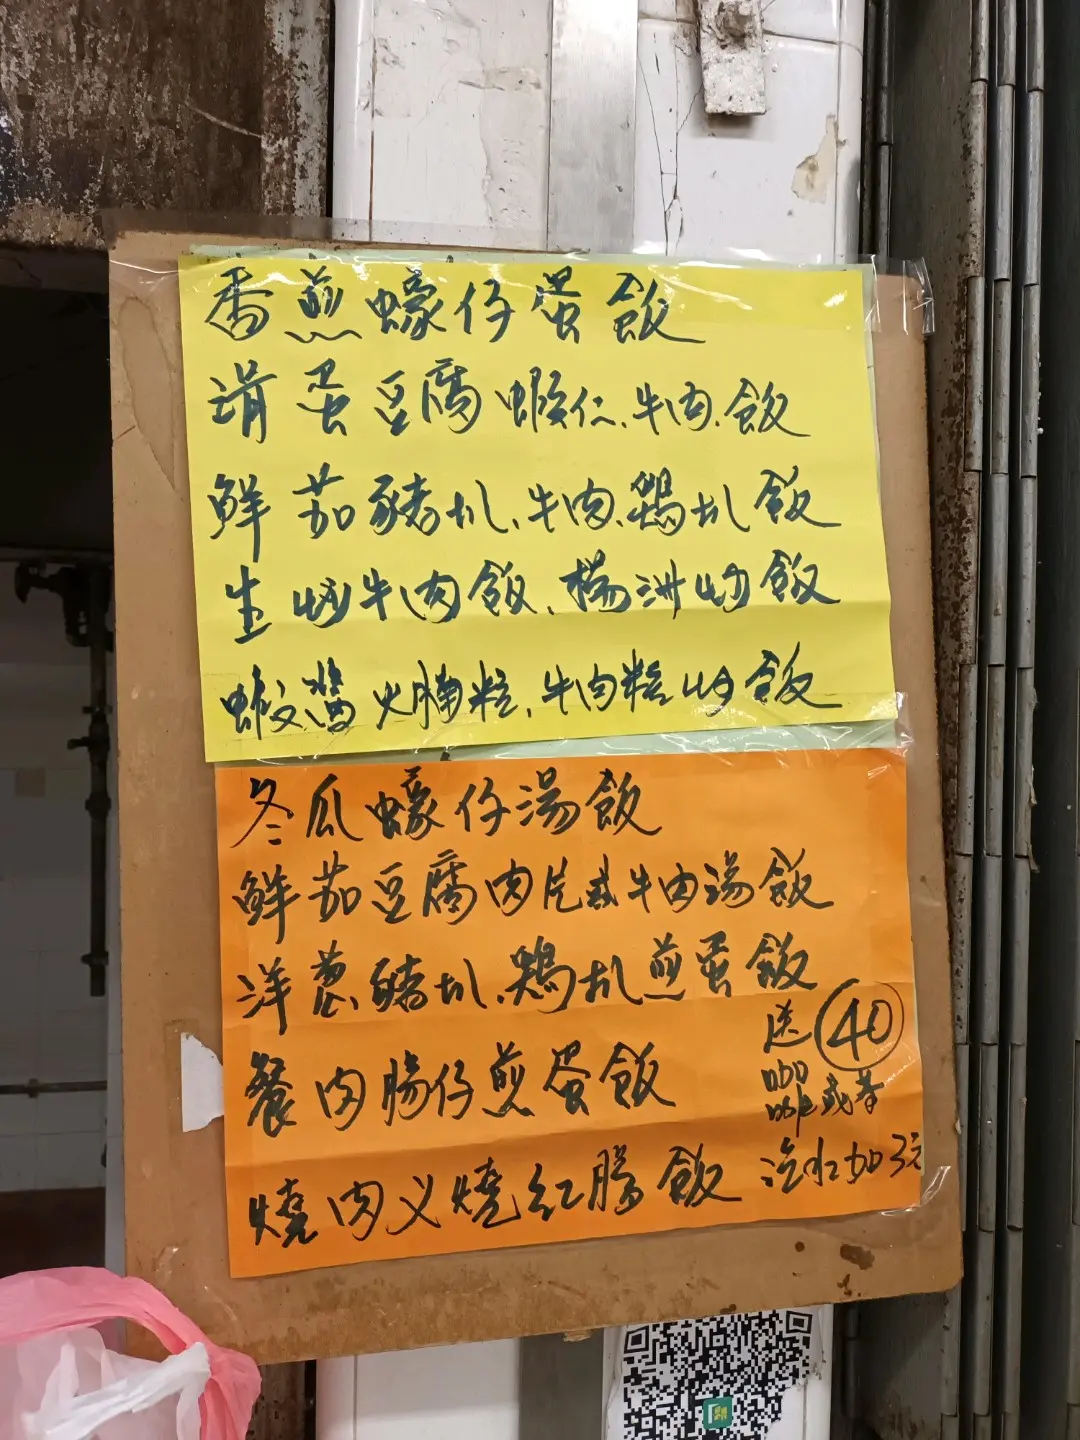 香煎蠔仔蛋飯
滑蛋豆腐蝦仁、牛肉、飯
鮮茄豬扒、牛肉、鷄扒飯
生炒牛肉飯、楊洲炒飯
蝦醬火腩粒、牛肉粒炒飯
冬瓜蠔仔湯飯
鮮茄豆腐肉片或牛肉湯飯
洋蔥豬扒、鷄扒煎蛋飯
餐肉腸仔煎蛋飯
燒肉义燒紅腸飯
40
送
咖啡或茶
汽水加3元